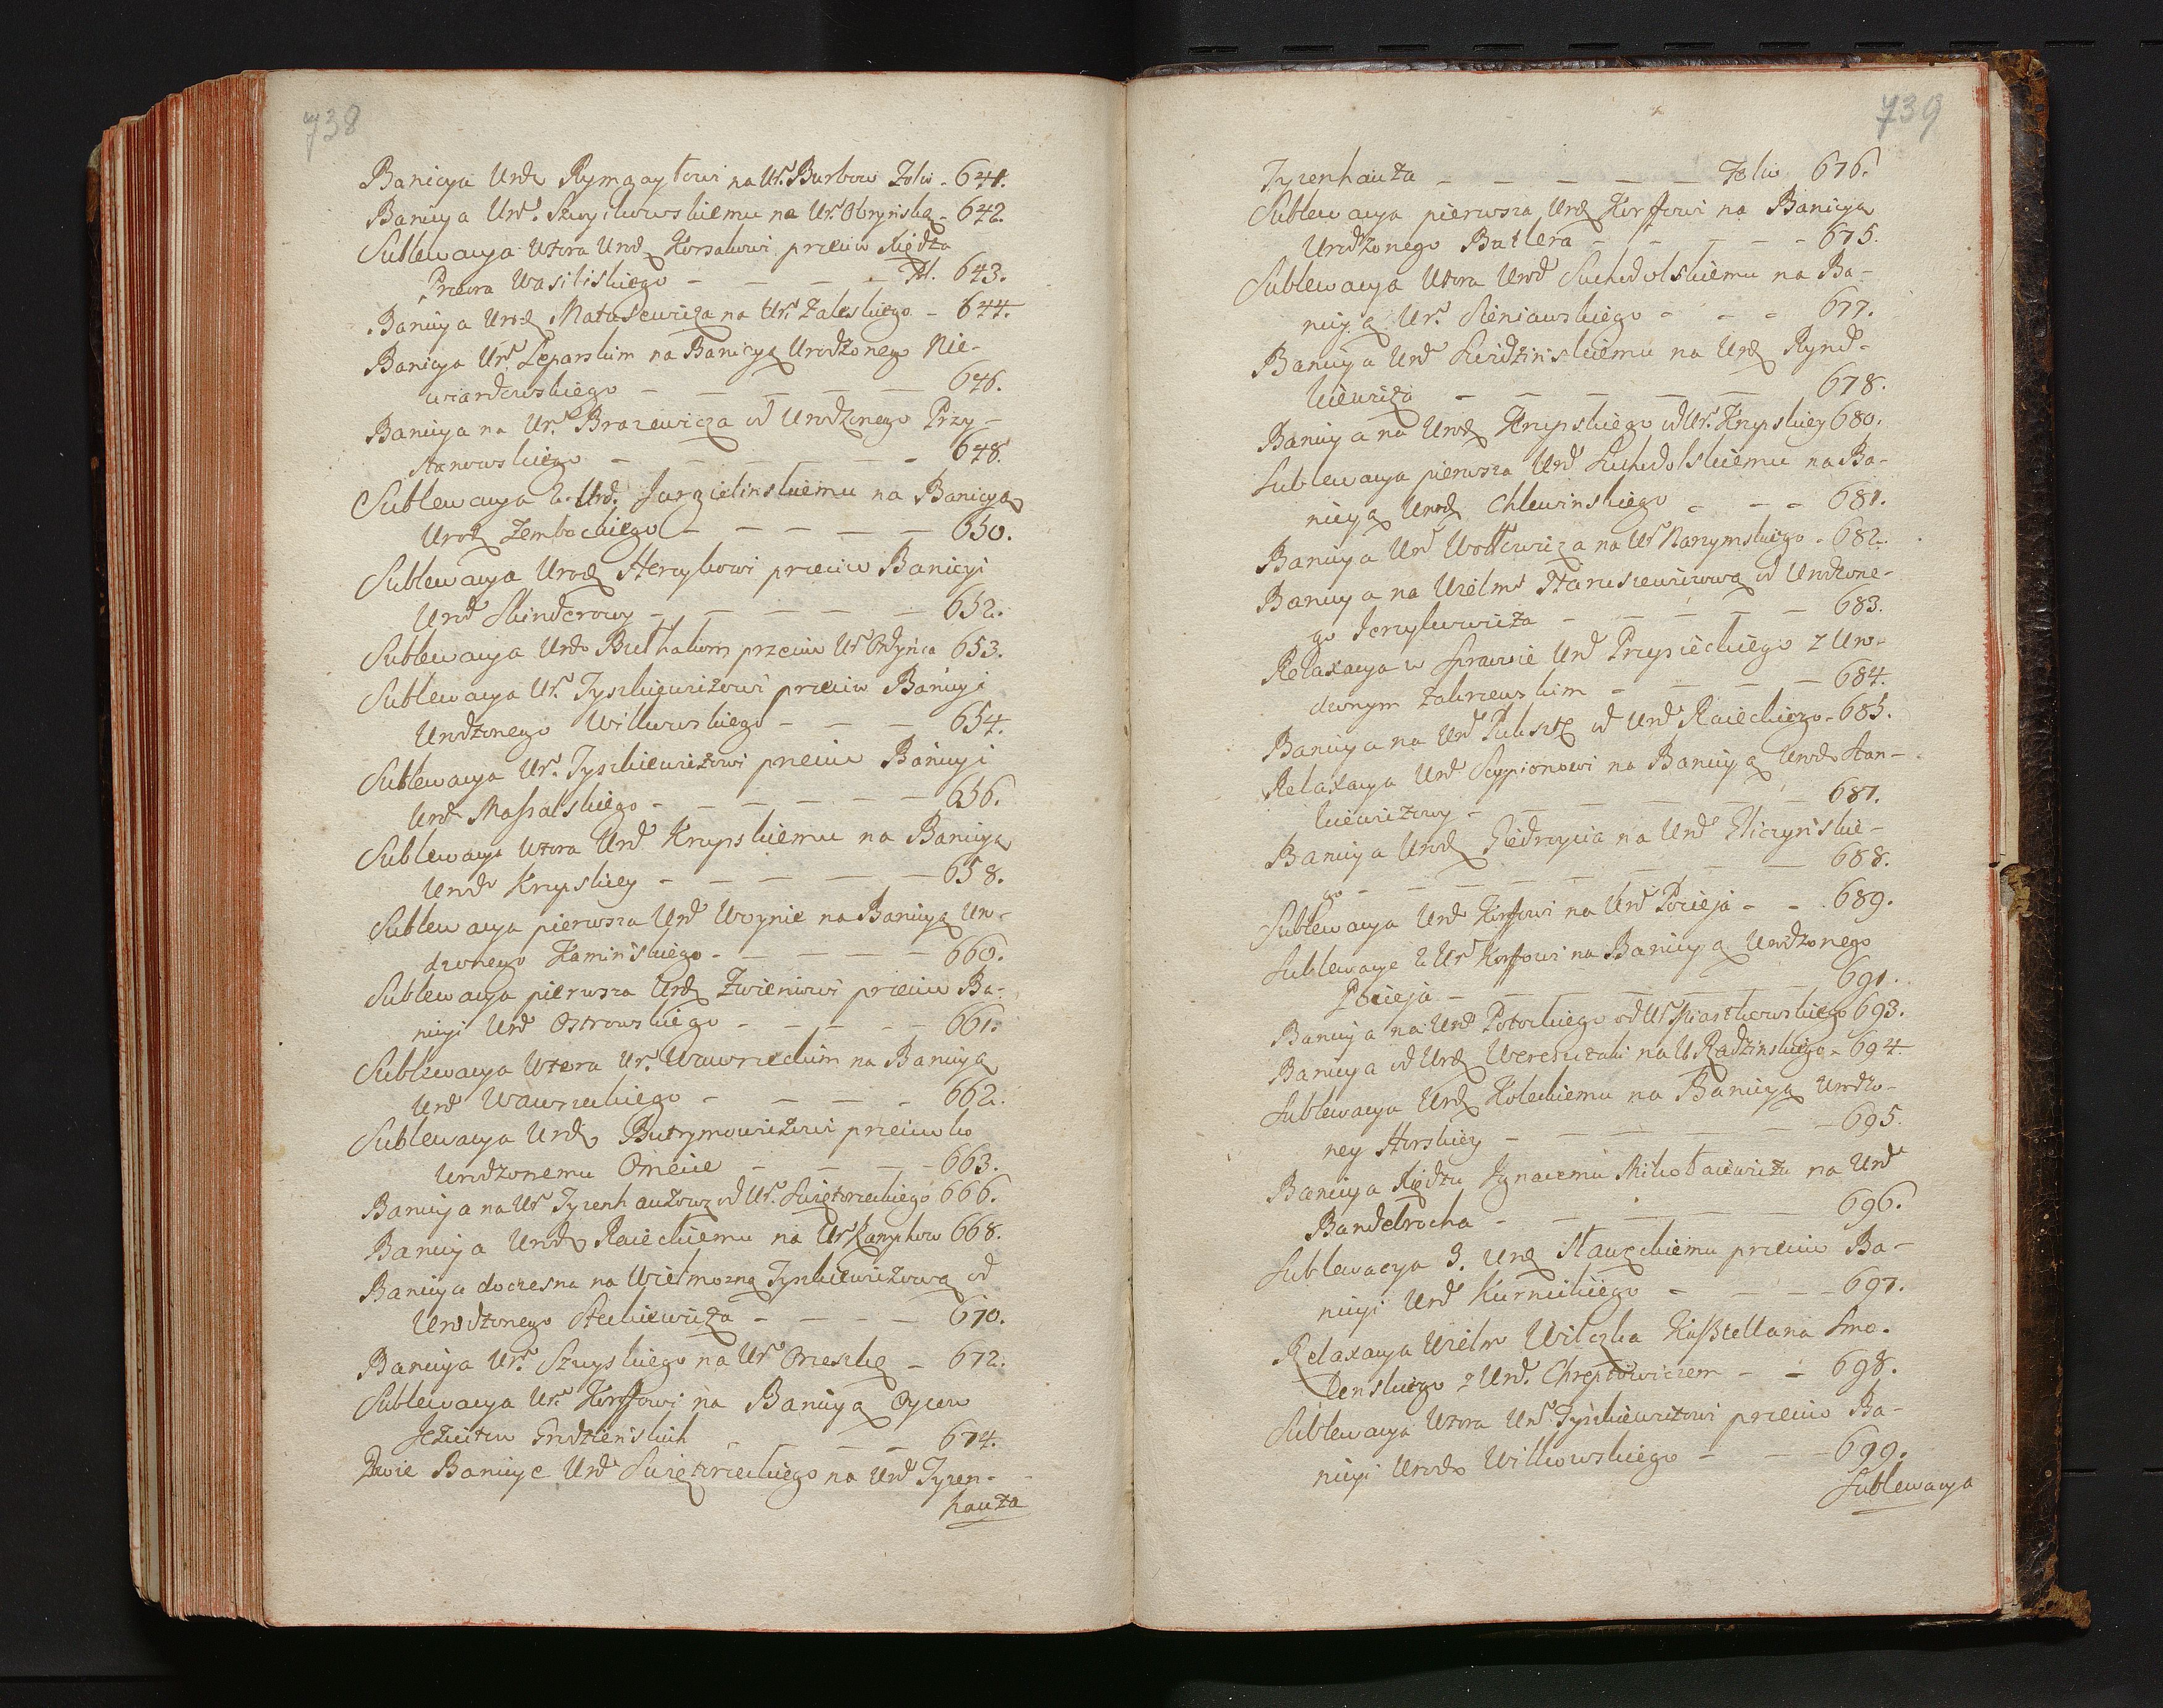 738
Banicya Urod. Rymgayłowi na Ur. Burbow Folio - 641.
Banicya Urd. Szwyikowskiemu na Ur. Obryńską - 642.
Sublewacya wtora Urod. Korsakowi przeciw Xiędza
Przeora Wasiliskiego - - - - Fol. 643.
Banicya Urod. Matusewicza na Ur. Zaleskiego - 644.
Banicya Ur. Leparskim na Banicyą Urodzonego Nie-
wiardowskiego - - - - 646.
Banicya na Ur. Brazewicza od Urodzonego Przy-
stanowskiego - - - - 648.
Sublewacya 2. Urd. Jurgielinskiemu na Banicyą
Urod Zembockiego - - - - - 650.
Sublewacya Urod Hercykowi przeciw Banicyi
Urd Skinderowy - - - - - 652.
Sublewacya Urd Buthakom przeciw Ur Ordyńca 653.
Sublewacya Ur. Tyszkiewiżowi przeciw Banicyi
Urodzonego Witkowskiego - - - 654.
Sublewacya Ur. Tyszkiewiżowi przeciw Banicyi
Urd Massalskiego - - - - - - 656.
Sublewacya wtora Urd Krupskiemu na Banicyą
Urod Krupskiey - - - - - 658.
Sublewacya pierwsza Urd Woynie na Banicyą Uro-
dzonego Kamińskiego - - - - - 660.
Sublewacya pierwsza Urd Zwieniowi przeciw Ba-
nicyi Urd Ostrowskiego - - - - - 661.
Sublewacya wtora Ur. Wawrzeckim na Banicyą
Urd Wawrzeckiego - - - - 662.
Sublewacya Urod Butrymowiżowi przeciwko
Urodzonemu Omecie - - - - 663.
Banicya na Ur Tyzenhauzową od Ur. Swiętorzeckiego 666.
Banicya Urod Raieckiemu na Ur 668.
Banicya doczesna na Wielmożną Tyszkiewiżową od
Urodzonego Steckiewiża - - - - 670.
Banicya Ur. Szuyskiego na Ur Orzeszkę - 672.
Sublewacya Ur. Korffowi na Banicyą Oycow
Jezuitow Grodzieńskich - - - - 674.
Dwie Banicye Urd Swiętorzeckiego na Urd Tyzen-
hauza
739
Tyzenhauza - - - - - - Folio 676.
Sublewacya pierwsza Urd Korffowi na Banicyą
Urodzonego Butlera - - - - - 675.
Sublewacya wtora Urd Suchodolskiemu na Ba-
nicyą Ur. Sieniawskiego - - - 677.
Banicya Urd Swidzińskiemu na Urd Rynd-
kiewicza - - - - - - 678.
Banicya na Urod Krupskiego od Ur. Krupskiey 680.
Sublewacya pierwsza Urd Suchodolskiemu na Ba-
nicyą Urod Chlewinskiego - - - 681.
Banicya Urd Wołłowicza na Ur Narzymskiego - 682.
Banicya na Wielm Haruszewiczową od Urodzone-
go Jerzykowicza - - - - - 683.
Relaxacya w sprawie Urd Przysieckiego z Uro-
dzonym Zakrzewskim - - - - 684.
Banicya na Urd od Urd Raieckiego - 685.
Relaxacya Urd Scypionowi na Banicyą Urod Stan-
kiewiżowy - - - - - - 687.
Banicya Urod Giedroycia na Urd Kliczyńskie-
go - - - - - - - - 688.
Sublewacya Urd Korffowi na Urd Pocieja - - 689.
Sublewacye 2 Ur Korffowi na Banicyą Urodzonego
Pocieja - - - - - - - 691.
Banicya na Urd Potockiego od Ur Miastkowskiego 693.
Banicya od Urd Wereszczaki na Ur Radzinskiego - 694.
Sublewacya Urd Koleckiemu na Banicyą Urodzo-
ney Horskiey - - - - - - 695.
Banicya Xiędzu Ignacemu Mikołaiewiczu na Urd
Bandebrocha - - - - - - 696.
Sublewacya 3. Urd Staweckiemu przeciw Ba-
nicyi Urd Kurnickiego - - - - 697.
Relaxacya Wielm Wilczka Kasztellana Smo-
leńskiego z Urd. Chreptowiczem - - 698.
Sublewacya wtora Urd Tyszkiewiżowi przeciw Ba-
nicyi Urod Witkowskiego - - - 699.
Sublewacya